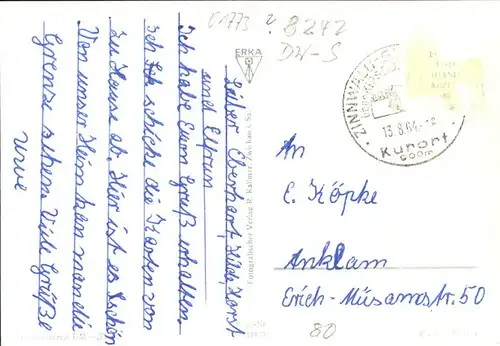 V1773
8242
DW-S
Lieber Eberhart, Horst
und Elfrun
ich habe Euern Gruß erhalten
ich schicke die Karten von
zu Hause ab. Hier ist es schön
Von unser Heim kan man die
Grenze sehen. Viele Grüße
Uwe
ERKA
Fotografischer Verlag R. Kallmer, Zwickau i. Sa.
ZINNWALD-GE
13.8.64
Kurort
800m
An
E. Köpke
Anklam
Erich-Müsamstr. 50
80